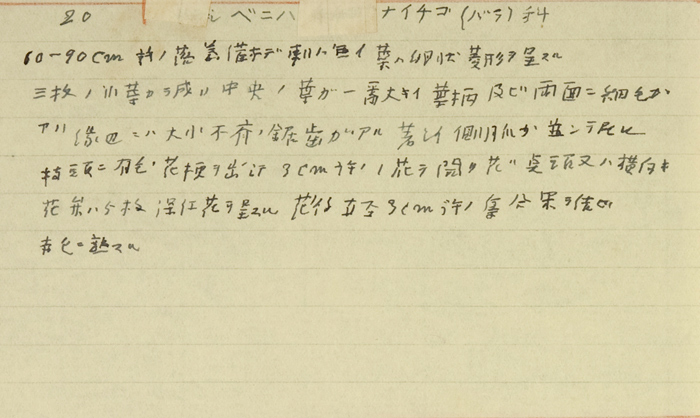 20 ル ベニハナイチゴ (バラ)科
60-90cm 許ノ落葉潅木デ刺ハ無イ 葉ハ卵状菱形ヲ呈スル
三枚ノ小葉カラ成リ中央ノ葉ガ一番大キイ 葉柄及ビ両面ニ細毛ガ
アリ 縁辺ニハ大小不斉ノ鋸歯ガアル 著シイ側脈ガ並ンデ居ル
枝頭ニ有毛ノ花梗ヲ出シテ 3cm許ノ花ヲ開ク 花ハ点頭又ハ横向キ
花弁ハ5枚 深紅花ヲ呈スル 花後 直径3cm許ノ集合果ヲ結ビ
赤色ニ熟スル